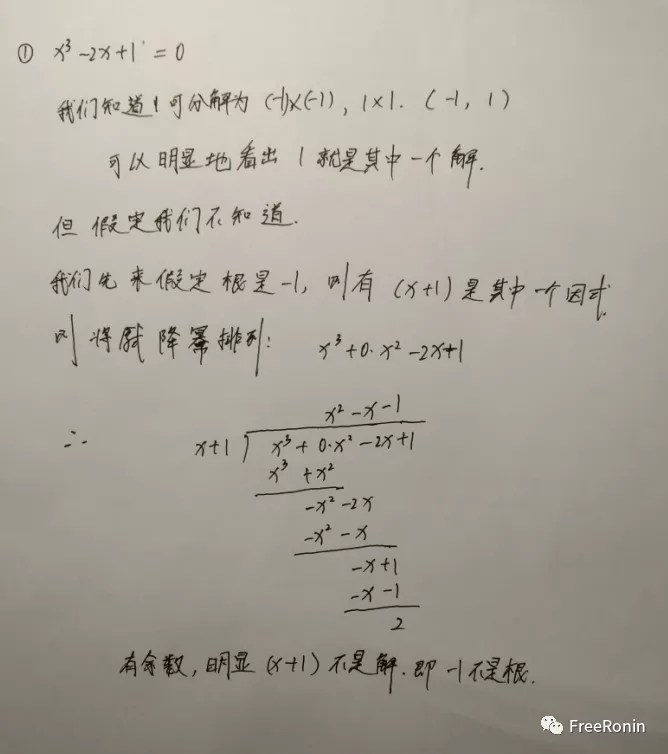 ① x³-2x+1=0
我们知道1可分解为(-1)×(-1), 1×1. (-1, 1)
可以明显地看出1就是其中一个解.
但假定我们不知道.
我们先来假定根是-1, 则有(x+1)是其中一个因式.
则将 降幂排列: x³+0·x²-2x+1
x²-x-1
∴ x+1 x³+0·x²-2x+1
x³+x²
-x²-2x
-x²-x
-x+1
-x-1
2
有余数, 明显(x+1)不是解. 即-1不是根.
FreeRonin